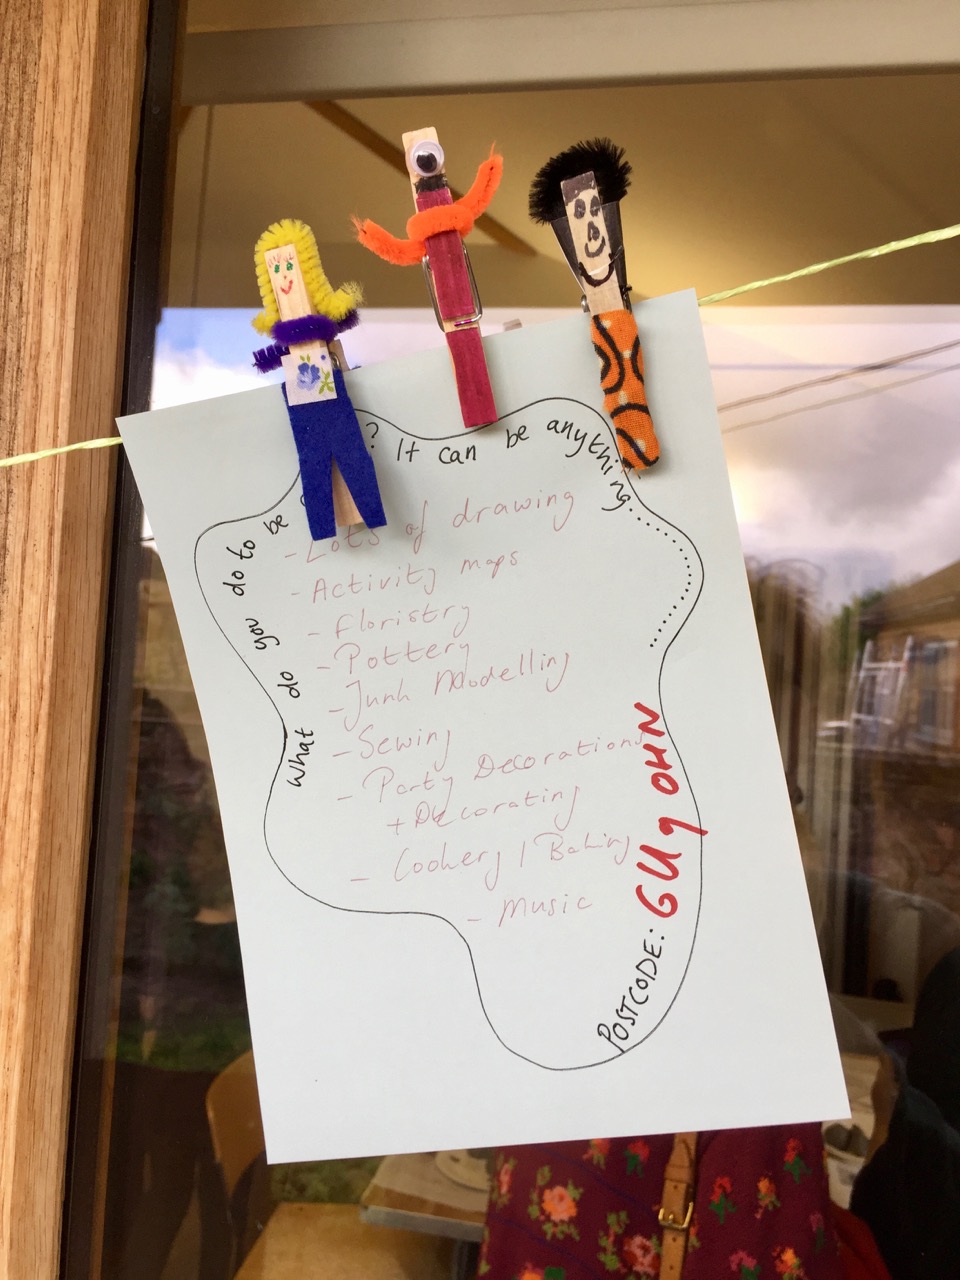 What do you do to be ? It can be anything.......
- Lots of drawing
- Activity maps
- Floristry
- Pottery
- Junk Modelling
- Sewing
- Party Decorations
+ Decorating
- Cookery / Baking
- Music
POSTCODE: GU9 0HN